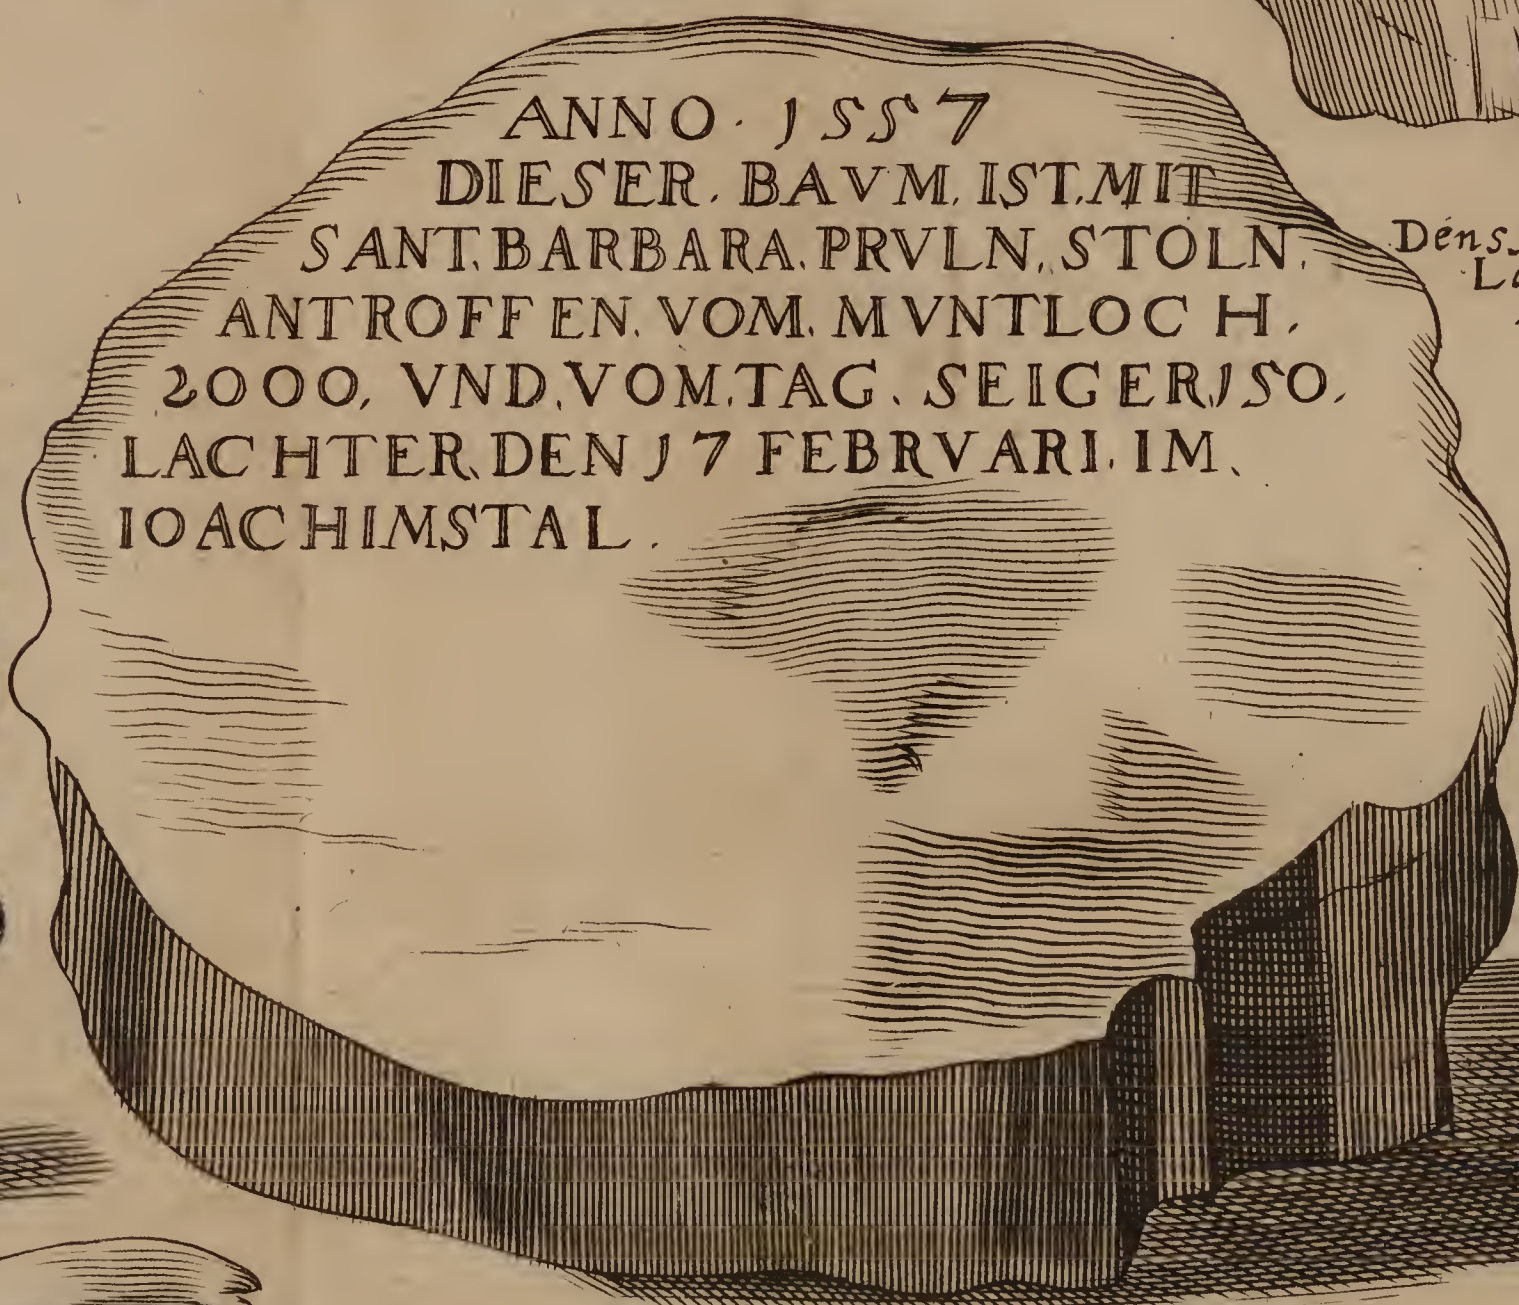 ANNO · 1557
DIESER. BAVM. IST. MIT
SANT. BARBARA. PRVLN. STOLN.
ANTROFFEN. VOM. MVNTLOCH.
2000, VND. VOM. TAG. SEIGER. 150.
LACHTER. DEN 17 FEBRVARI. IM.
IOACHIMSTAL.